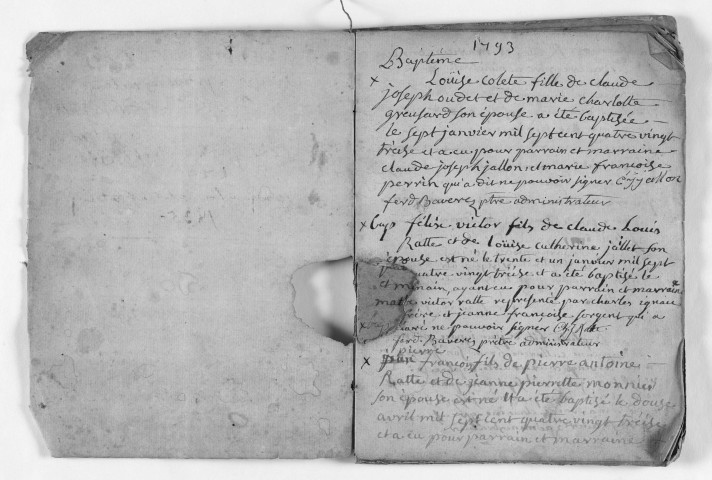 1793
Baptême
x Louise colete fille de claude
joseph oudet et de marie charlotte
greusard son épouse a été baptisée
le sept janvier mil sept cent quatre vingt
treise et a eu pour parrain et marraine
claude joseph jallon et marie francoise
perrin qu'a dit ne pouvoir signer
ferd Baveres ptre administrateur
x Bap félix victor fils de claude Louis
Ratte et de Louise catherine jallet son
épouse est né le trente et un janvier mil sept
quatre vingt treise et a été baptisé le
ayant eu pour parrain et marraine
victor ratte représenté par charles ignace
et jeanne françoise sergent qui a
ne pouvoir signer
ferd Baveres prêtre administrateur
pierre
x françois fils de pierre antoine
Ratte et de jeanne pierrette monnier
son épouse est né et a été baptisé le douse
avril mil sept cent quatre vingt treise
et a eu pour parrain et marraine